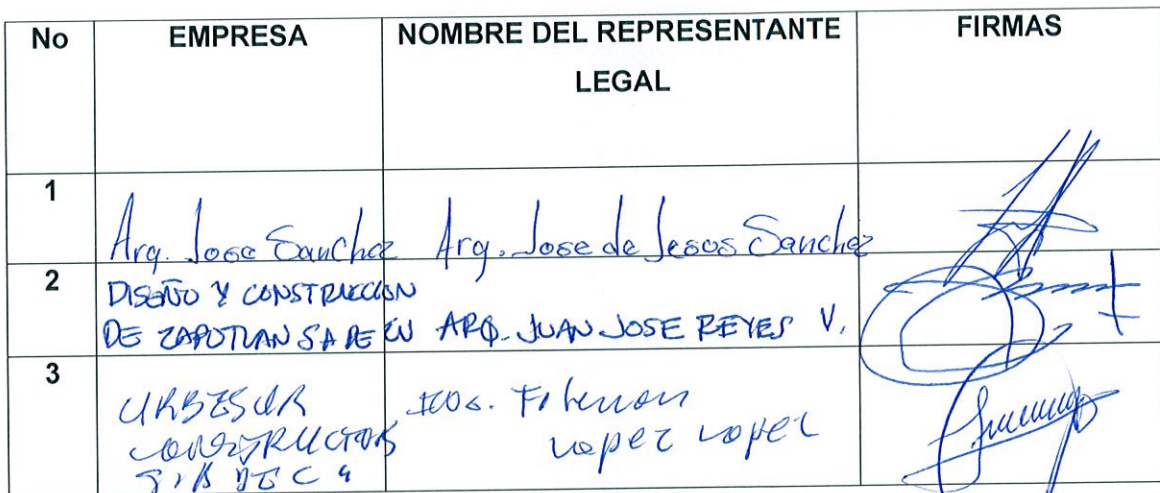 No EMPRESA NOMBRE DEL REPRESENTANTE LEGAL FIRMAS
1 Arq. Jose Sanchez Arq. Jose de Jesos Sanchez
2 DISEÑO Y CONSTRUCCION
DE ZAPOTLAN SA DE CV ARQ. JUAN JOSE REYES V.
3 URBESUR
CONSTRUCTORS
LOPEZ LOPEZ